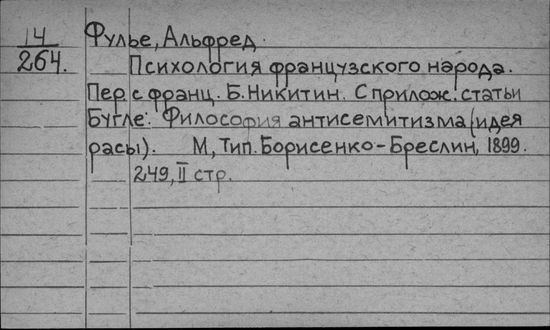 14
264.
Фулье, Альфред.
Психология французского народа.
Пер с франц. Б. Никитин. С прилож. статьи
Бугле: Философия антисемитизма (идея
расы). М, Тип. Борисенко-Бреслин, 1899.
249, II стр.